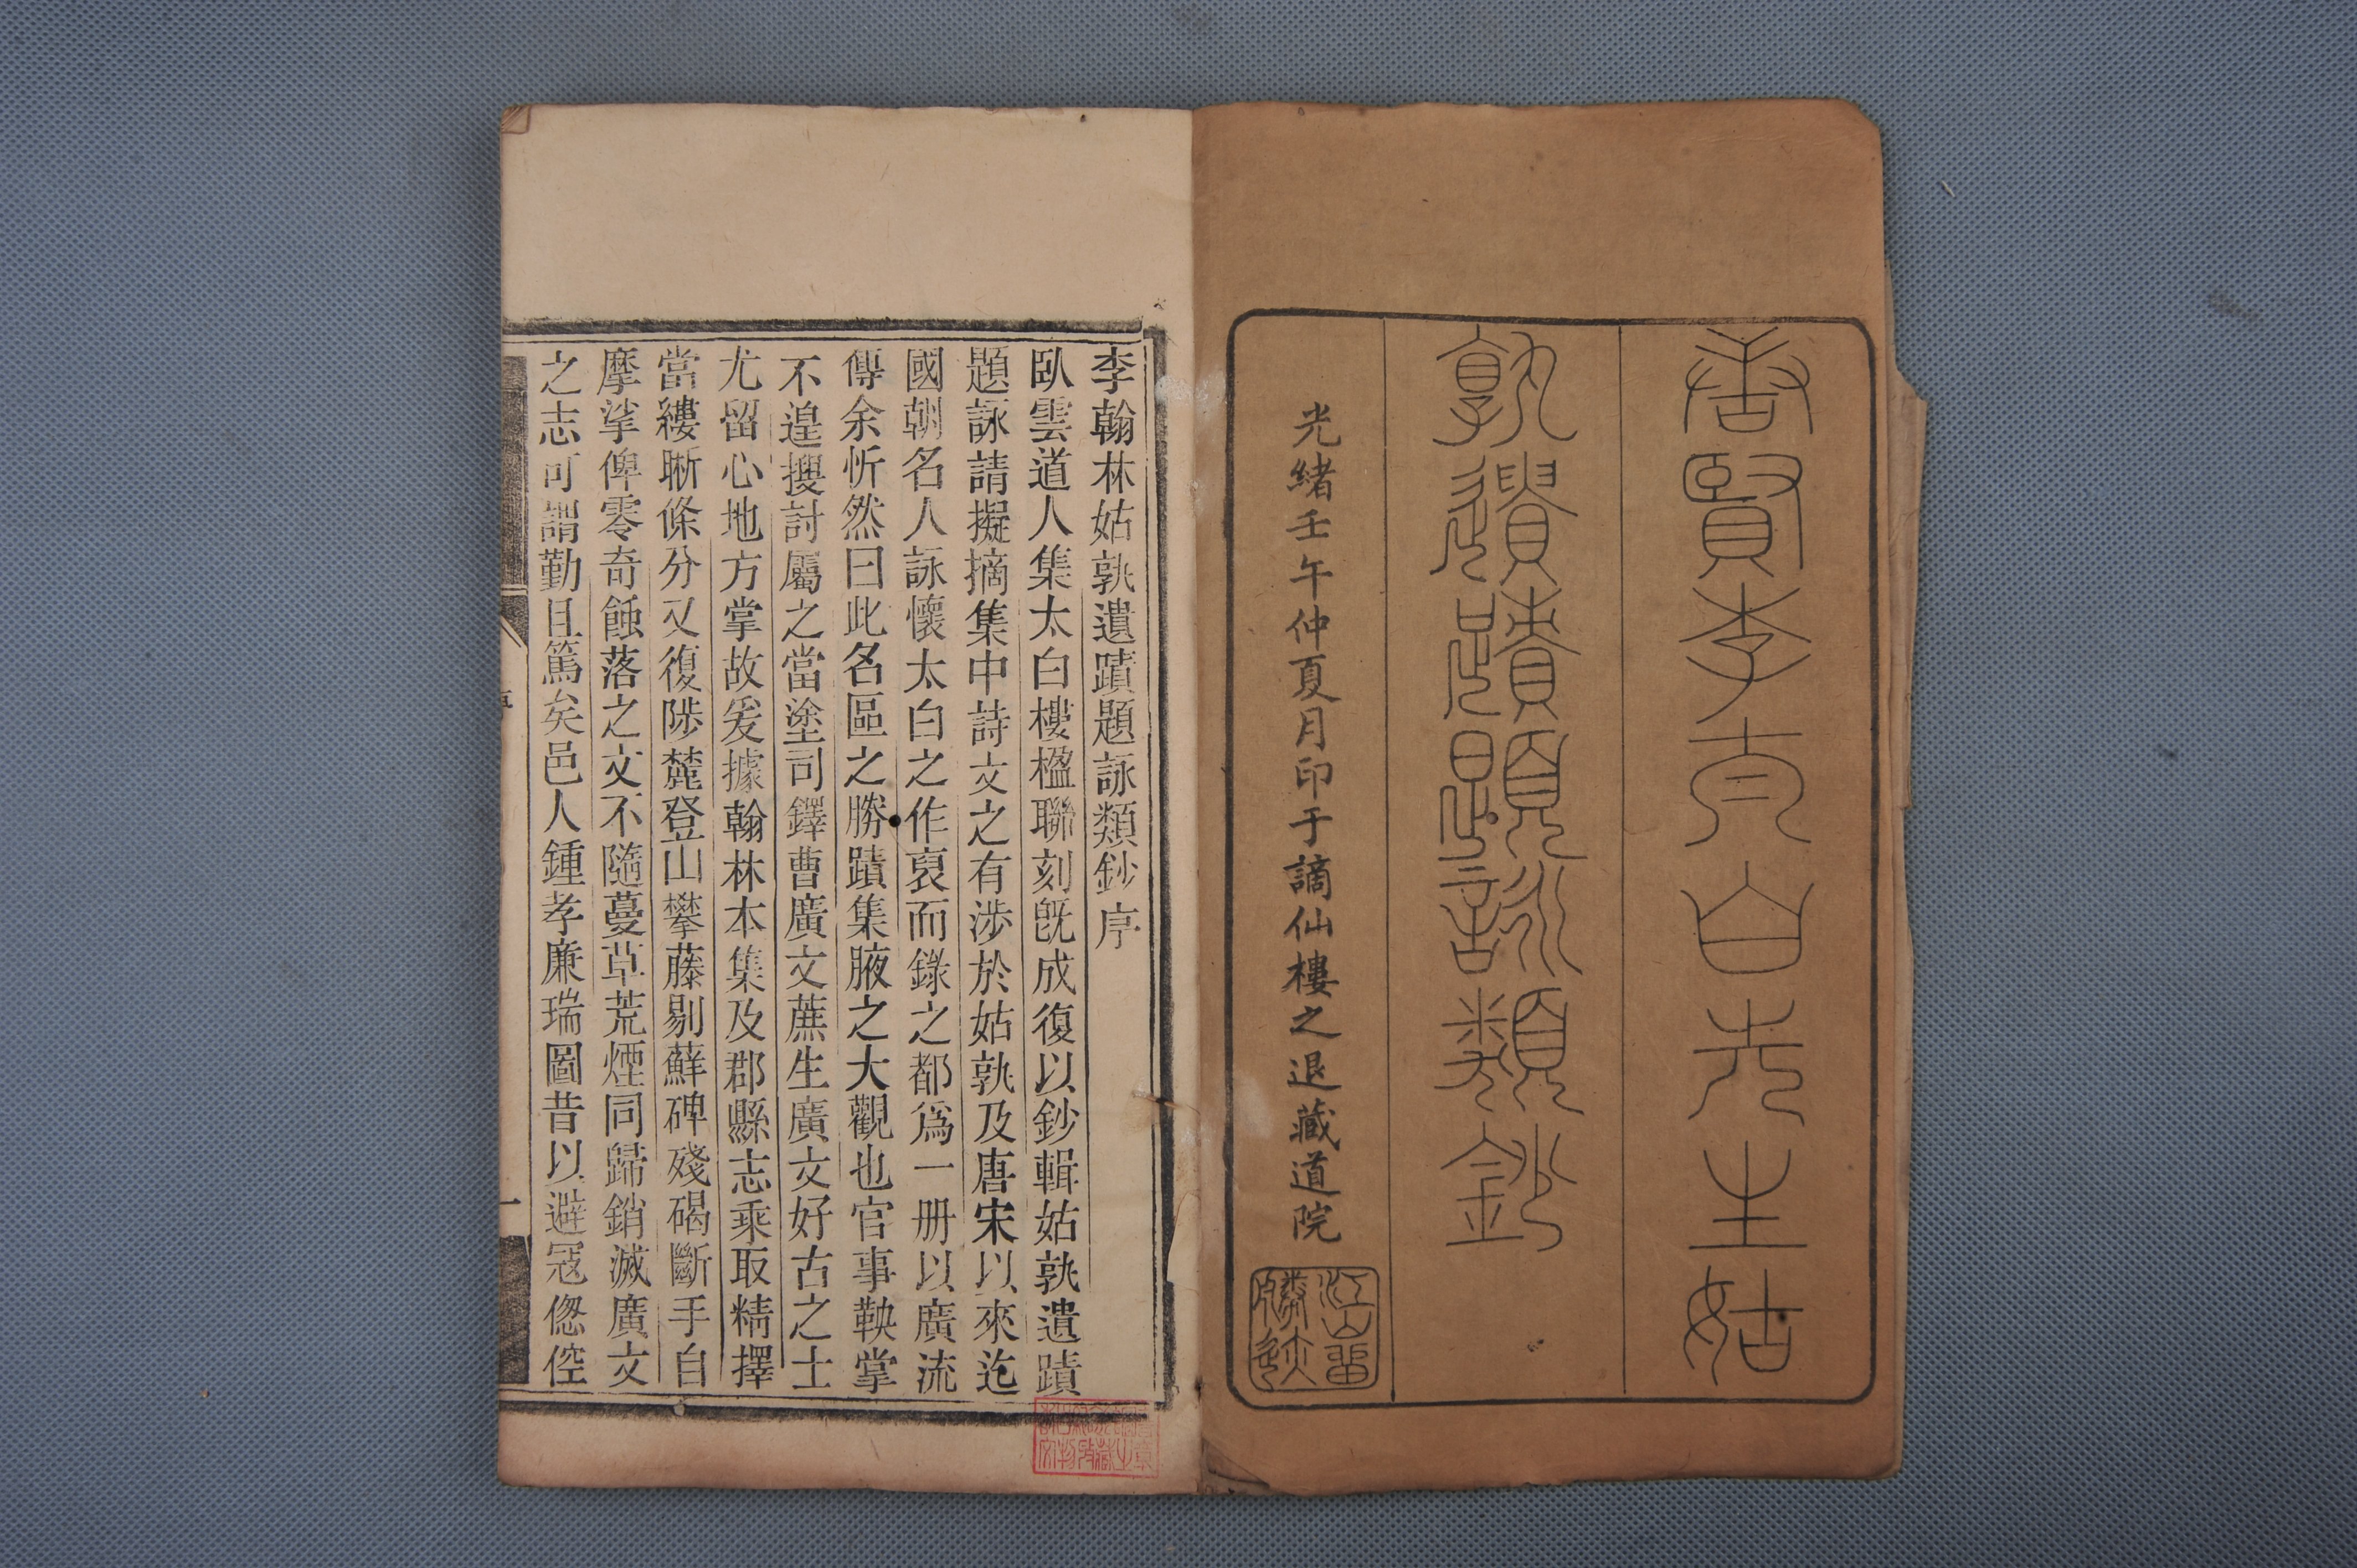 唐賢李太白先生姑
孰遺蹟題詠類鈔
光緒壬午仲夏月印于謫仙樓之退藏道院
李翰林姑孰遺蹟題詠類鈔序
臥雲道人集太白樓楹聯刻旣成復以鈔輯姑孰遺蹟
題詠請擬摘集中詩文之有涉於姑孰及唐宋以來迄
國朝名人詠懷太白之作裒而錄之都爲一册以廣流
傳余忻然曰此名區之勝蹟集腋之大觀也官事鞅掌
不遑搜討屬之當塗司鐸曹廣文蔗生廣文好古之士
尤留心地方掌故爰據翰林本集及郡縣志乘取精擇
當縷晰條分又復陟麓登山攀藤剔蘚碑殘碣斷手自
摩挲俾零奇蝕落之文不隨蔓草荒煙同歸銷滅廣文
之志可謂勤且篤矣邑人鍾孝廉瑞圖昔以避冦偬倥
一